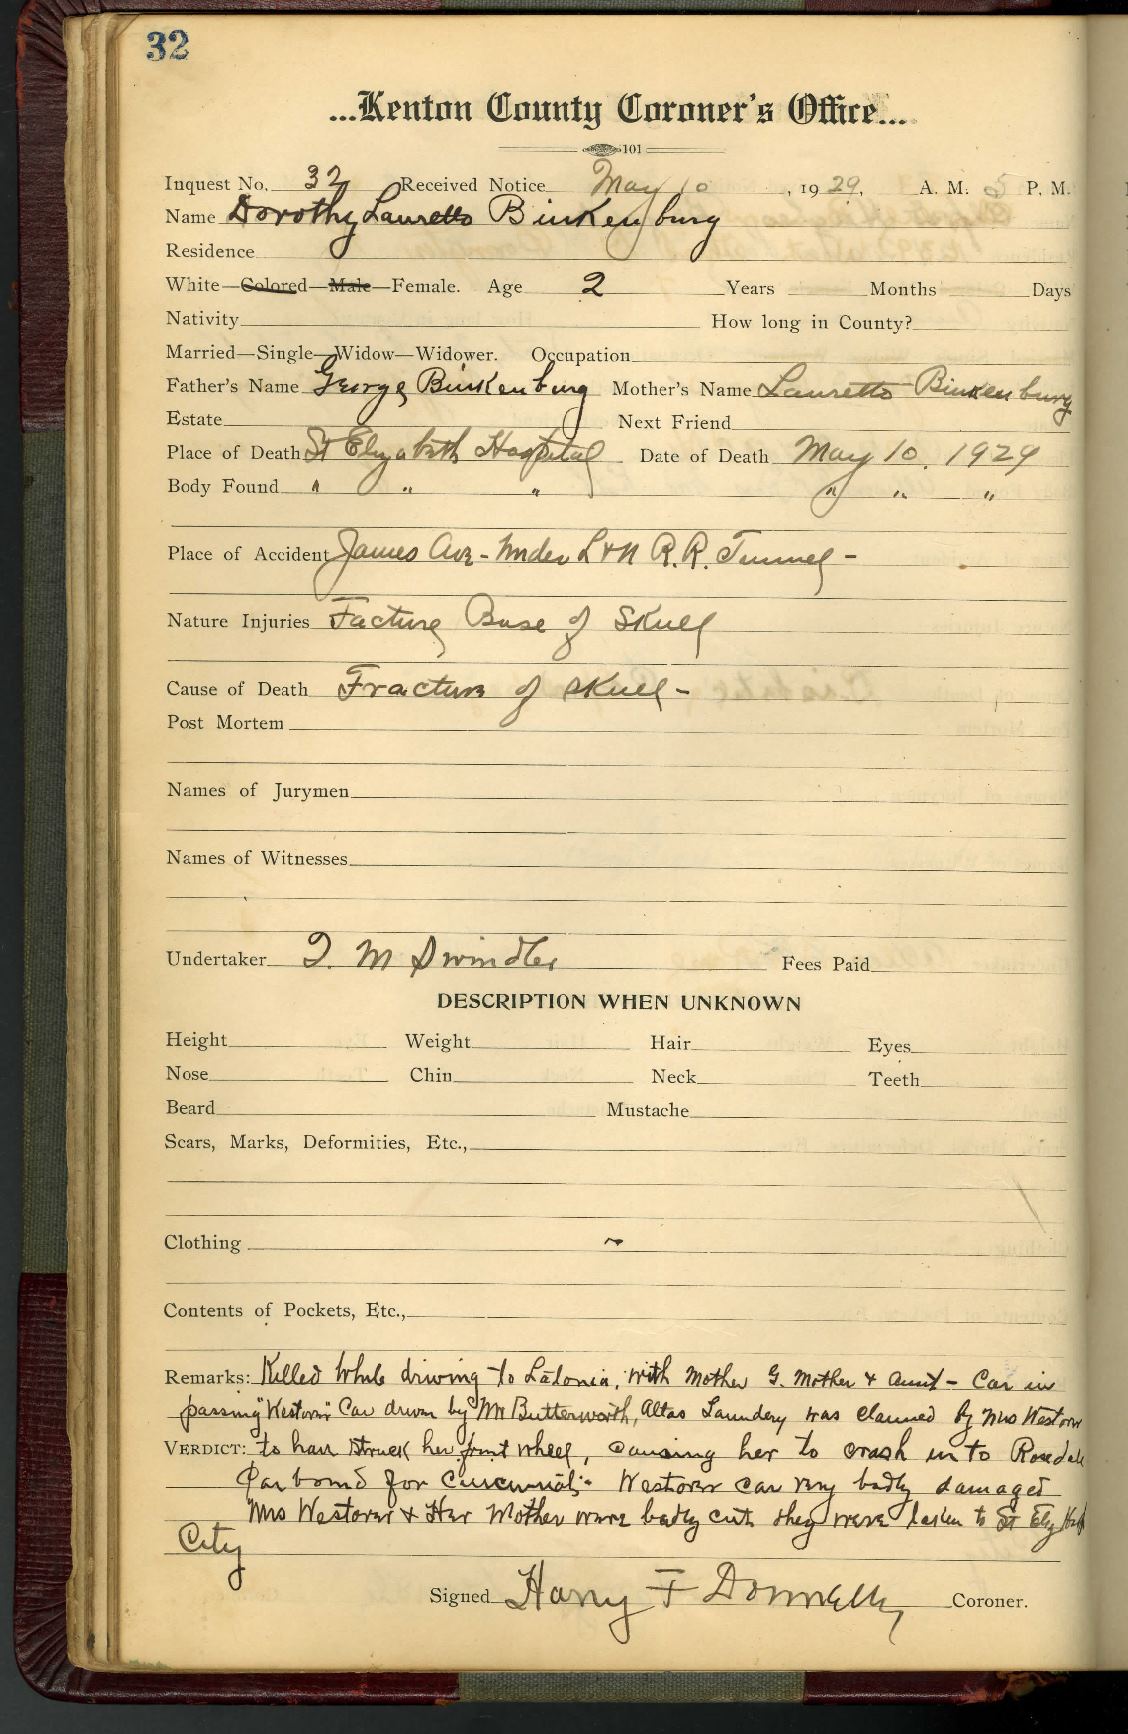 32
...Kenton County Coroner's Office...
101
Inquest No. 32 Received Notice May 10, 1929, A. M. 5 P. M.
Name Dorothy Lauretto Binkenburg
Residence
White—Colored—Male—Female. Age 2 Years Months Days
Nativity How long in County?
Married—Single—Widow—Widower. Occupation
Father's Name George Binkenburg Mother's Name Lauretto Binkenburg
Estate Next Friend
Place of Death St Elizabeth Hospital Date of Death May 10. 1929
Body Found " " " " " "
Place of Accident James Ave - Under L & N R.R. Tunnel -
Nature Injuries Facture Base of Skull
Cause of Death Fracture of Skull -
Post Mortem
Names of Jurymen
Names of Witnesses
Undertaker M Swindler Fees Paid
DESCRIPTION WHEN UNKNOWN
Height Weight Hair Eyes
Nose Chin Neck Teeth
Beard Mustache
Scars, Marks, Deformities, Etc.,
Clothing ~
Contents of Pockets, Etc.,
Remarks: Killed while driving to Latonia, with Mother G. Mother & Aunt - Car in
passing "Westover" Car driven by Mr Butterworth, Altas Laundery was claimed by Mrs Westover
VERDICT: to have struck her front wheel, causing her to crash in to Rosedale
Car bound for Cincinnati - Westover car very badly damaged
Mrs Westover & Her Mother were badly cut they were taken to St Eliz
City
Signed Harry F Donnelly Coroner.